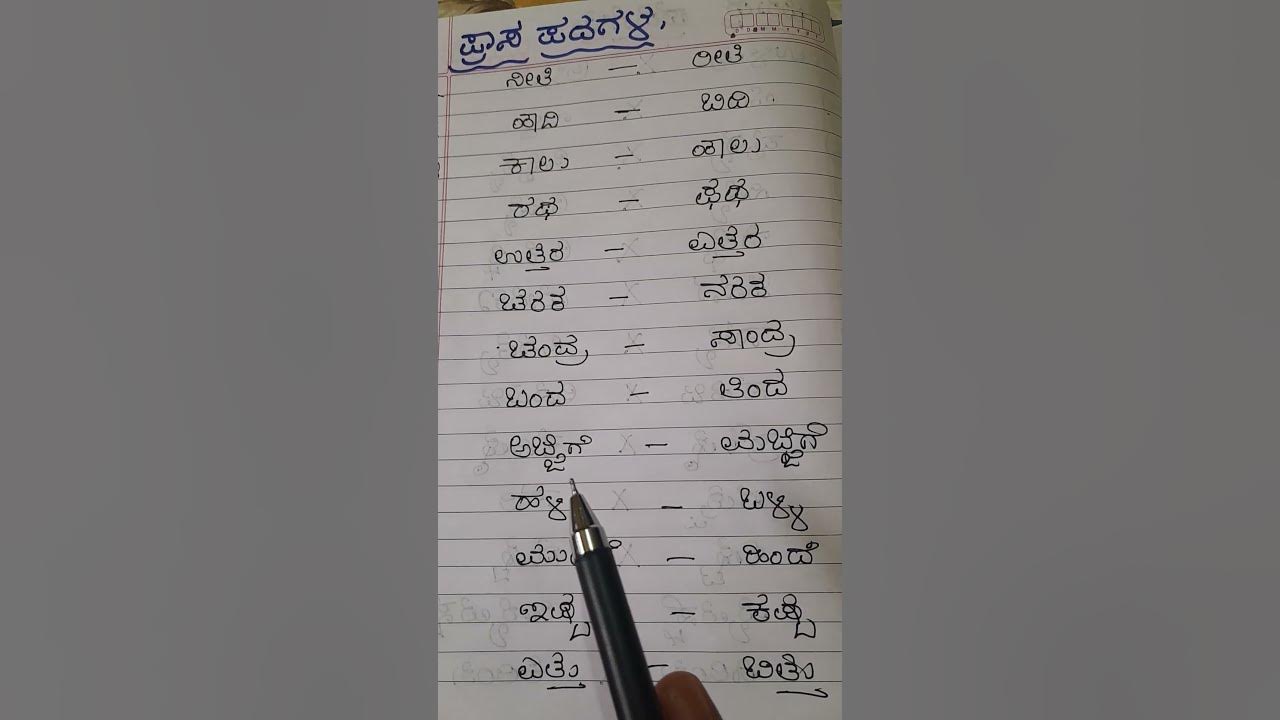 ಪ್ರಾಸ ಪದಗಳು.
ನೀತಿ - ರೀತಿ
ಹಾದಿ - ಬಿದಿ
ಕಾಲು - ಹಾಲು
ರಥ -
ಉತ್ತರ - ಎತ್ತರ
ಚರಕ - ನರಕ
ಚಂದ್ರ - ಸಾಂದ್ರ
ಬಂದ - ತಿಂದ
ಅಜ್ಜಿಗೆ - ಮಜ್ಜಿಗೆ
- ಬಳ್ಳಿ
- ಹಿಂದೆ
ಇಷ್ಟ - ಕಷ್ಟ
ಎತ್ತು - ಬಿತ್ತು